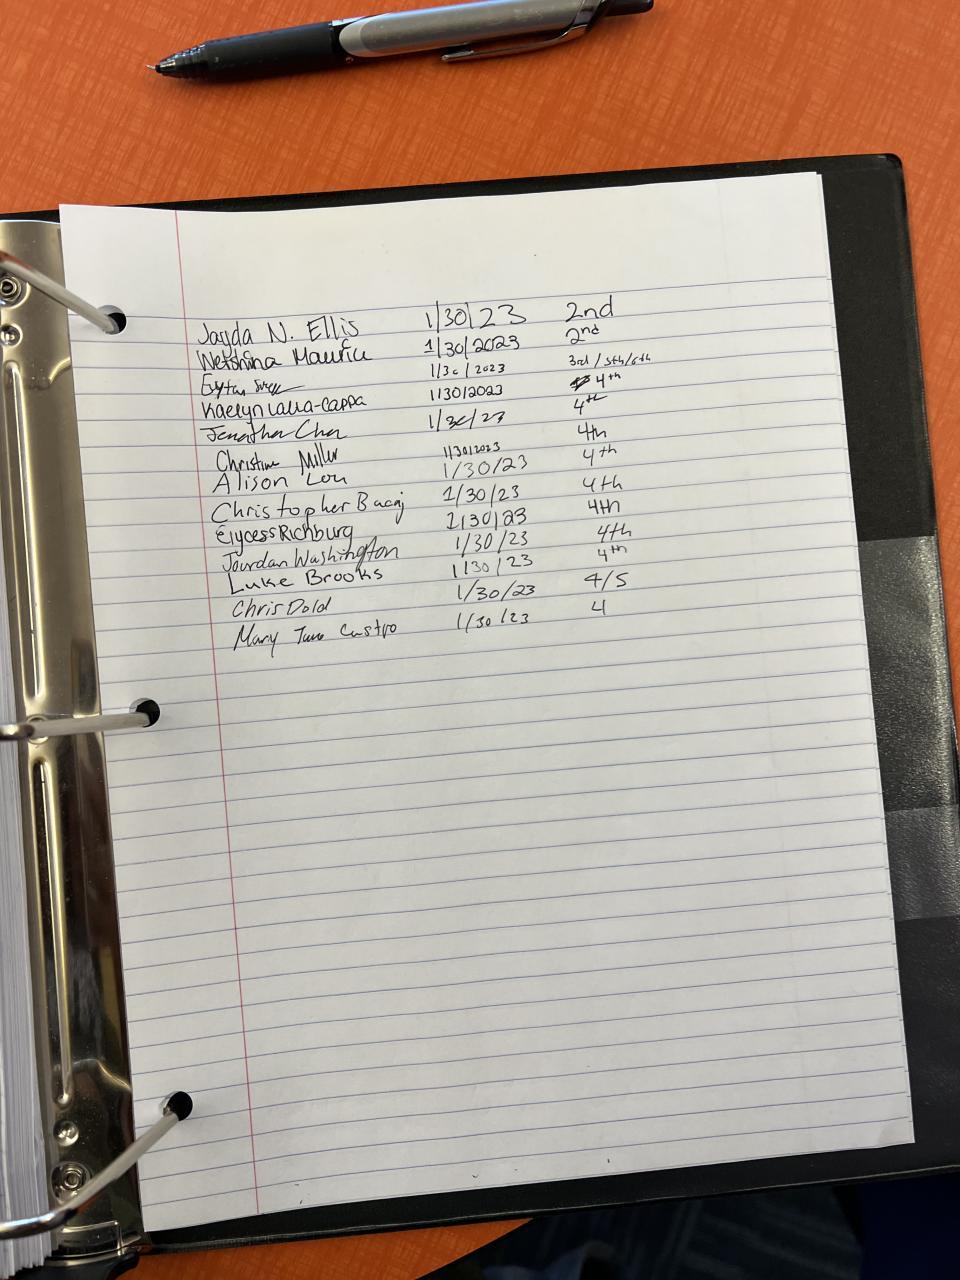 Jayda N. Ellis 1/30/23 2nd
Wetshina Maurice 1/30/2023 2nd
1/30/2023 3rd/5th/6th
Kaelyn 1/30/2023 4th
Jonathan Chen 1/30/23 4th
Christine Miller 1/30/2023 4th
Alison Lou 1/30/23 4th
Christopher Bacaj 1/30/23 4th
Elycess Richburg 1/30/23 4th
Jourdan Washington 1/30/23 4th
Luke Brooks 1/30/23 4th
Chris Dold 1/30/23 4/5
Mary Jane Castro 1/30/23 4